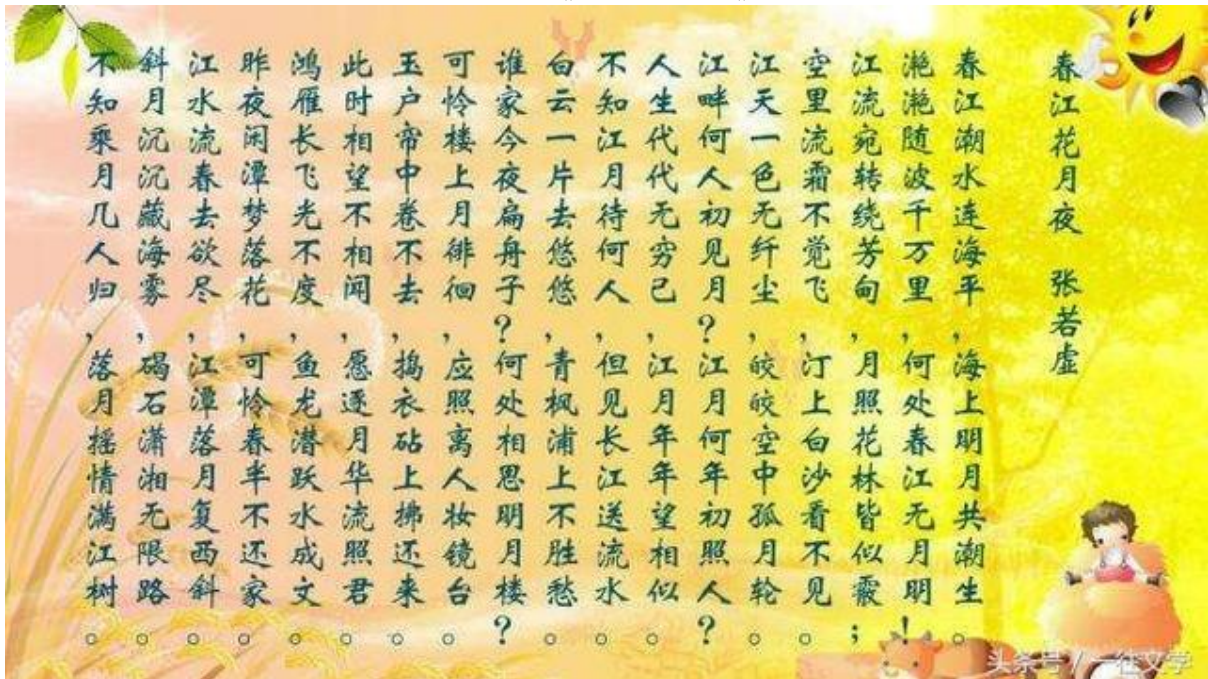 春江花月夜 张若虚
春江潮水连海平，海上明月共潮生。
滟滟随波千万里，何处春江无月明！
江流宛转绕芳甸，月照花林皆似霰；
空里流霜不觉飞，汀上白沙看不见。
江天一色无纤尘，皎皎空中孤月轮。
江畔何人初见月？江月何年初照人？
人生代代无穷已，江月年年望相似。
不知江月待何人，但见长江送流水。
白云一片去悠悠，青枫浦上不胜愁。
谁家今夜扁舟子？何处相思明月楼？
可怜楼上月徘徊，应照离人妆镜台。
玉户帘中卷不去，捣衣砧上拂还来。
此时相望不相闻，愿逐月华流照君。
鸿雁长飞光不度，鱼龙潜跃水成文。
昨夜闲潭梦落花，可怜春半不还家。
江水流春去欲尽，江潭落月复西斜。
斜月沉沉藏海雾，碣石潇湘无限路。
不知乘月几人归，落月摇情满江树。
头条号 / 一往文学